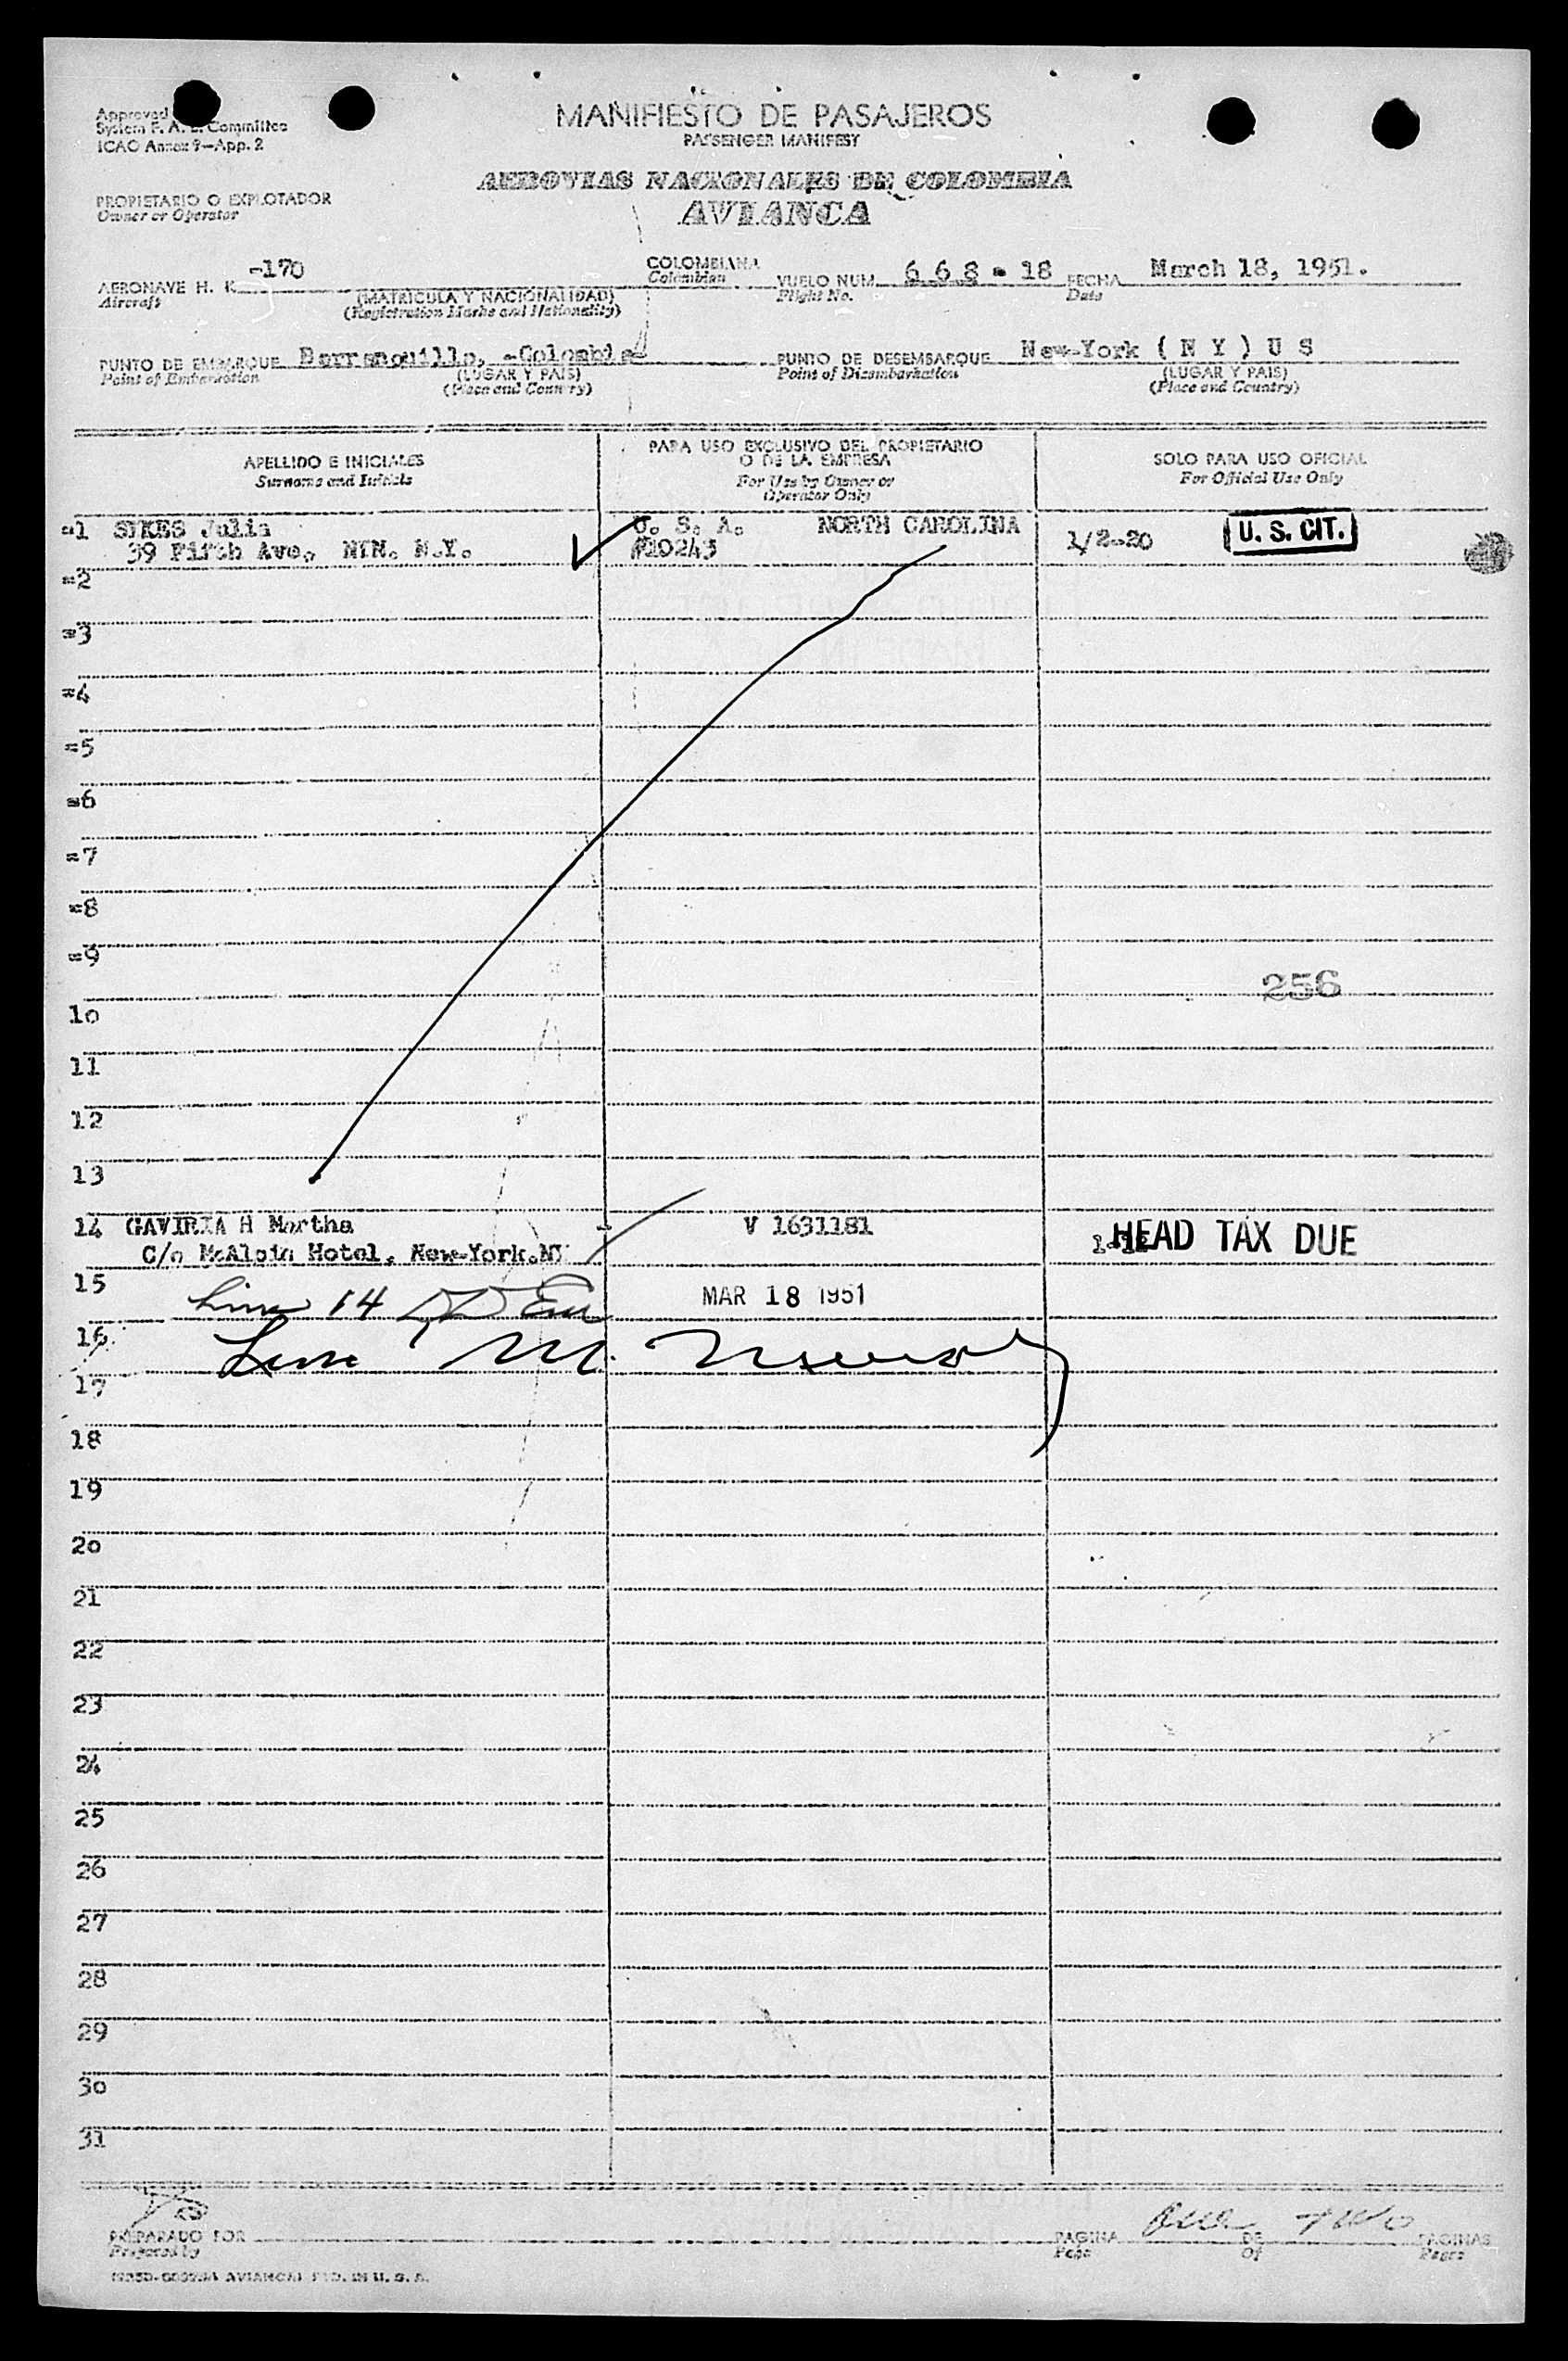 Approved
System F. A. L. Committee
ICAO Annex 9—App. 2
MANIFIESTO DE PASAJEROS
PASSENGER MANIFEST
PROPIETARIO O EXPLOTADOR
Owner or Operator
AEROVIAS NACIONALES DE COLOMBIA
AVIANCA
AERONAVE H. K. -170
Aircraft
(MATRICULA Y NACIONALIDAD)
(Registration Marks and Nationality)
COLOMBIANA
Colombian
VUELO NUM. 668 - 18
Flight No.
FECHA March 18, 1951.
Date
PUNTO DE EMBARQUE Barranquilla, -Colombia
Point of Embarkation
(LUGAR Y PAIS)
(Place and Country)
PUNTO DE DESEMBARQUE New-York ( N Y ) U S
Point of Disembarkation
(LUGAR Y PAIS)
(Place and Country)
APELLIDO E INICIALES
Surname and Initials
PARA USO EXCLUSIVO DEL PROPIETARIO
O DE LA EMPRESA
For Use by Owner or
Operator Only
SOLO PARA USO OFICIAL
For Official Use Only
=1 SYKES Julia U. S. A. NORTH CAROLINA 1/2-20 U. S. CIT.
39 Fifth Ave, NYN. N.Y. #10243
=2
=3
=4
=5
=6
=7
=8
=9
256
10
11
12
13
14 GAVIRIA H Martha V 1631181 HEAD TAX DUE
C/o McAlpin Hotel, New-York.NY
15 Line 14 MAR 18 1951
16
17
18
19
20
21
22
23
24
25
26
27
28
29
30
31
PREPARADO POR
Prepared by
PAGINA One DE Two PAGINAS
Page Of Pages
AVIANCA PTD. IN U. S. A.